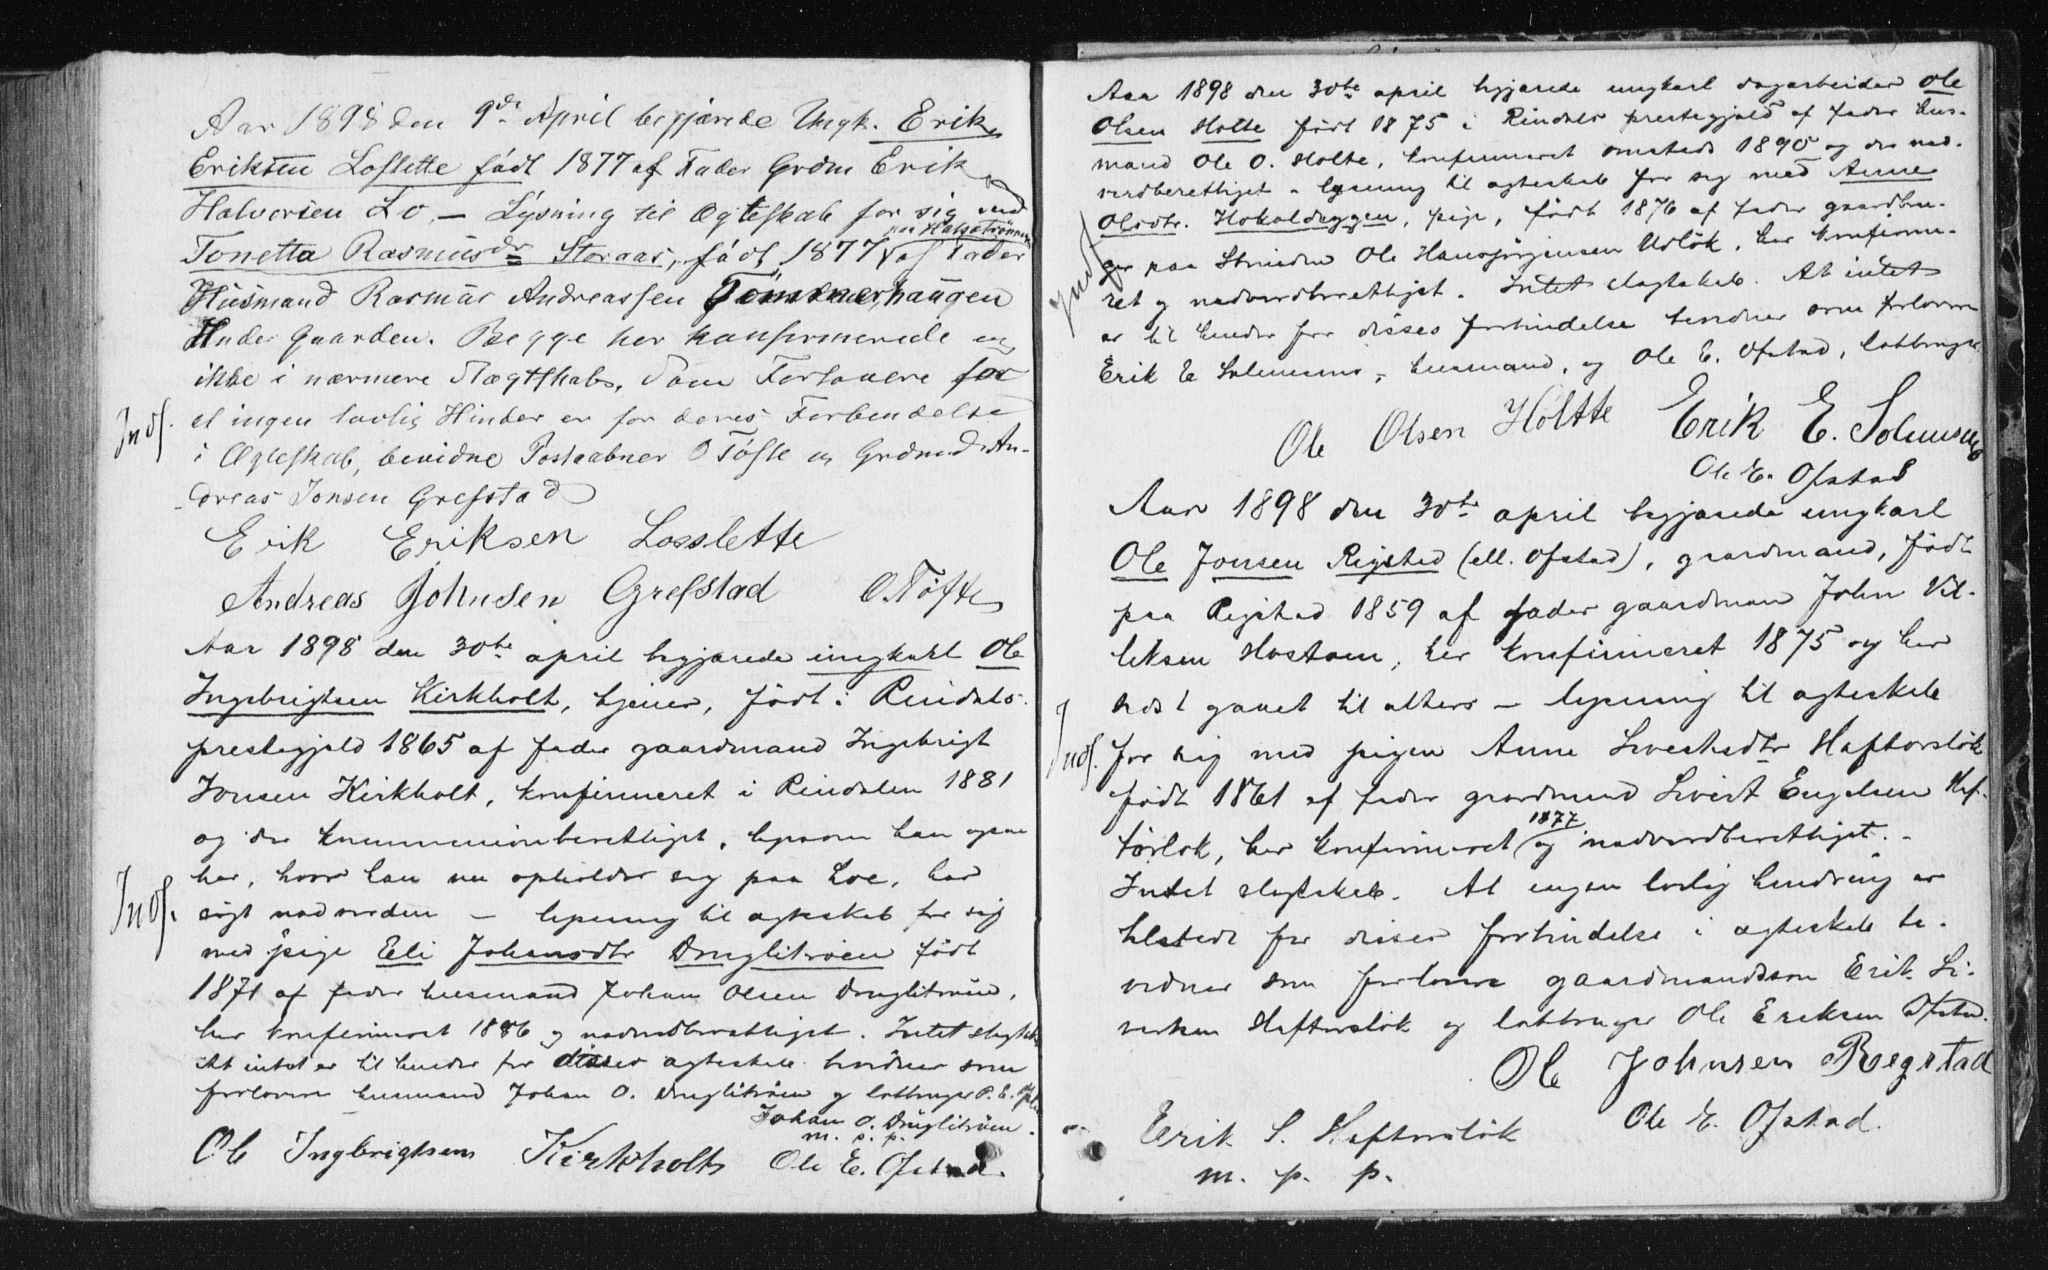 Aar 1898 den 9de April begjærede Ungk. Erik
Eriksen Loslette født 1877 af Fader Grdm Erik
Halvorsen Lo, — Lysning til Ægteskab for sig med
paa Halsetrønningen
Tonetta Rasmusdr Storaas, født 1877 af Fader
Husmand Rasmus Andreassen Tømmerhaugen
Under Gaarden. Begge her konfirmerede og
ikke i nærmere Slægtskab. Som Forlovere for
at ingen lovlig Hinder er for deres Forbindelse
Indf.
i Ægteskab, bevidne Postaabner O Tøfte og Grdmd. An-
dreas Jonsen Grefstad
Erik Eriksen Losslette
Andreas Johnsen Grefstad O. Tøfte
Aar 1898 den 30te april begjærede ungkarl Ole
Ingebrigtsen Kirkholt, tjener, født i Rindals
prestegjeld 1865 af fader gaardmand Ingebrigt
Jonsen Kirkholt, konfirmeret i Rindalen 1881
og der kommunionberettiget, ligesom han ogsaa
her, hvor han nu opholder sig paa Loe, har
Indf.
søgt nadverden — lysning til ægteskab for sig
med pige Eli Johansdtr Druglitrøen født
1871 af fader husmand Johan Olsen Druglitrøen,
her konfirmeret 1886 og nadverdberettiget. Intet slegtskab.
At intet er til hinder for disses ægteskab bevidner som
forlovere husmand Johan O. Druglitrøen og landbruger O. E. Ofstad
Johan O. Druglitrøen.
m. p. p.
Ole Ingbrigtsen Kirkholt Ole E. Ofstad.
Aar 1898 den 30te april begjærede ungkarl dagarbeider Ole
Olsen Holte født 1875 i Rindals prestegjeld af fader hus-
mand Ole O. Holte, konfirmeret omsteds 1890 og der nad-
verdberettiget - lysning til ægteskab for sig med Anne
Olsdtr. Hokaldryggen, pige, født 1876 af fader gaardbru-
Indf
ger paa Ole Hansjørgensen Utløk, her konfirme-
ret og nadverdberettiget. Intet slegtskab. At intet
er til hinder for disses forbindelse bevidner som forlovere
Erik E Solemsmo, husmand, og Ole E. Ofstad, landbruger.
Ole Olsen Holtte Erik E. Solemsmo
Ole E. Ofstad
Aar 1898 den 30te april begjærede ungkarl
Ole Jonsen Rigstad (ell. Ofstad), gaardmand, født
paa Rigstad 1859 af fader gaardman John Vil-
liksen Hostoen, her konfirmeret 1875 og her
sidst gaaet til alters — lysning til ægteskab
Indf.
for sig med pigen Anne Sivertsdtr Haftorsløk
født 1861 af fader gaardmand Sivert Engelsen Haf-
1877
törløk, her konfirmeret og nadverdberettiget. -
Intet slegtskab. At ingen lovlig hindring er
tilstede for disses forbindelse i ægteskab be-
vidner som forlovere gaardmandssøn Erik Si-
vertsen Haftorsløk og landbruger Ole Eriksen Ofstad.
Ole Johnsen Regstad
Erik S. Haftorsløk Ole E. Ofstad.
m. p. p.